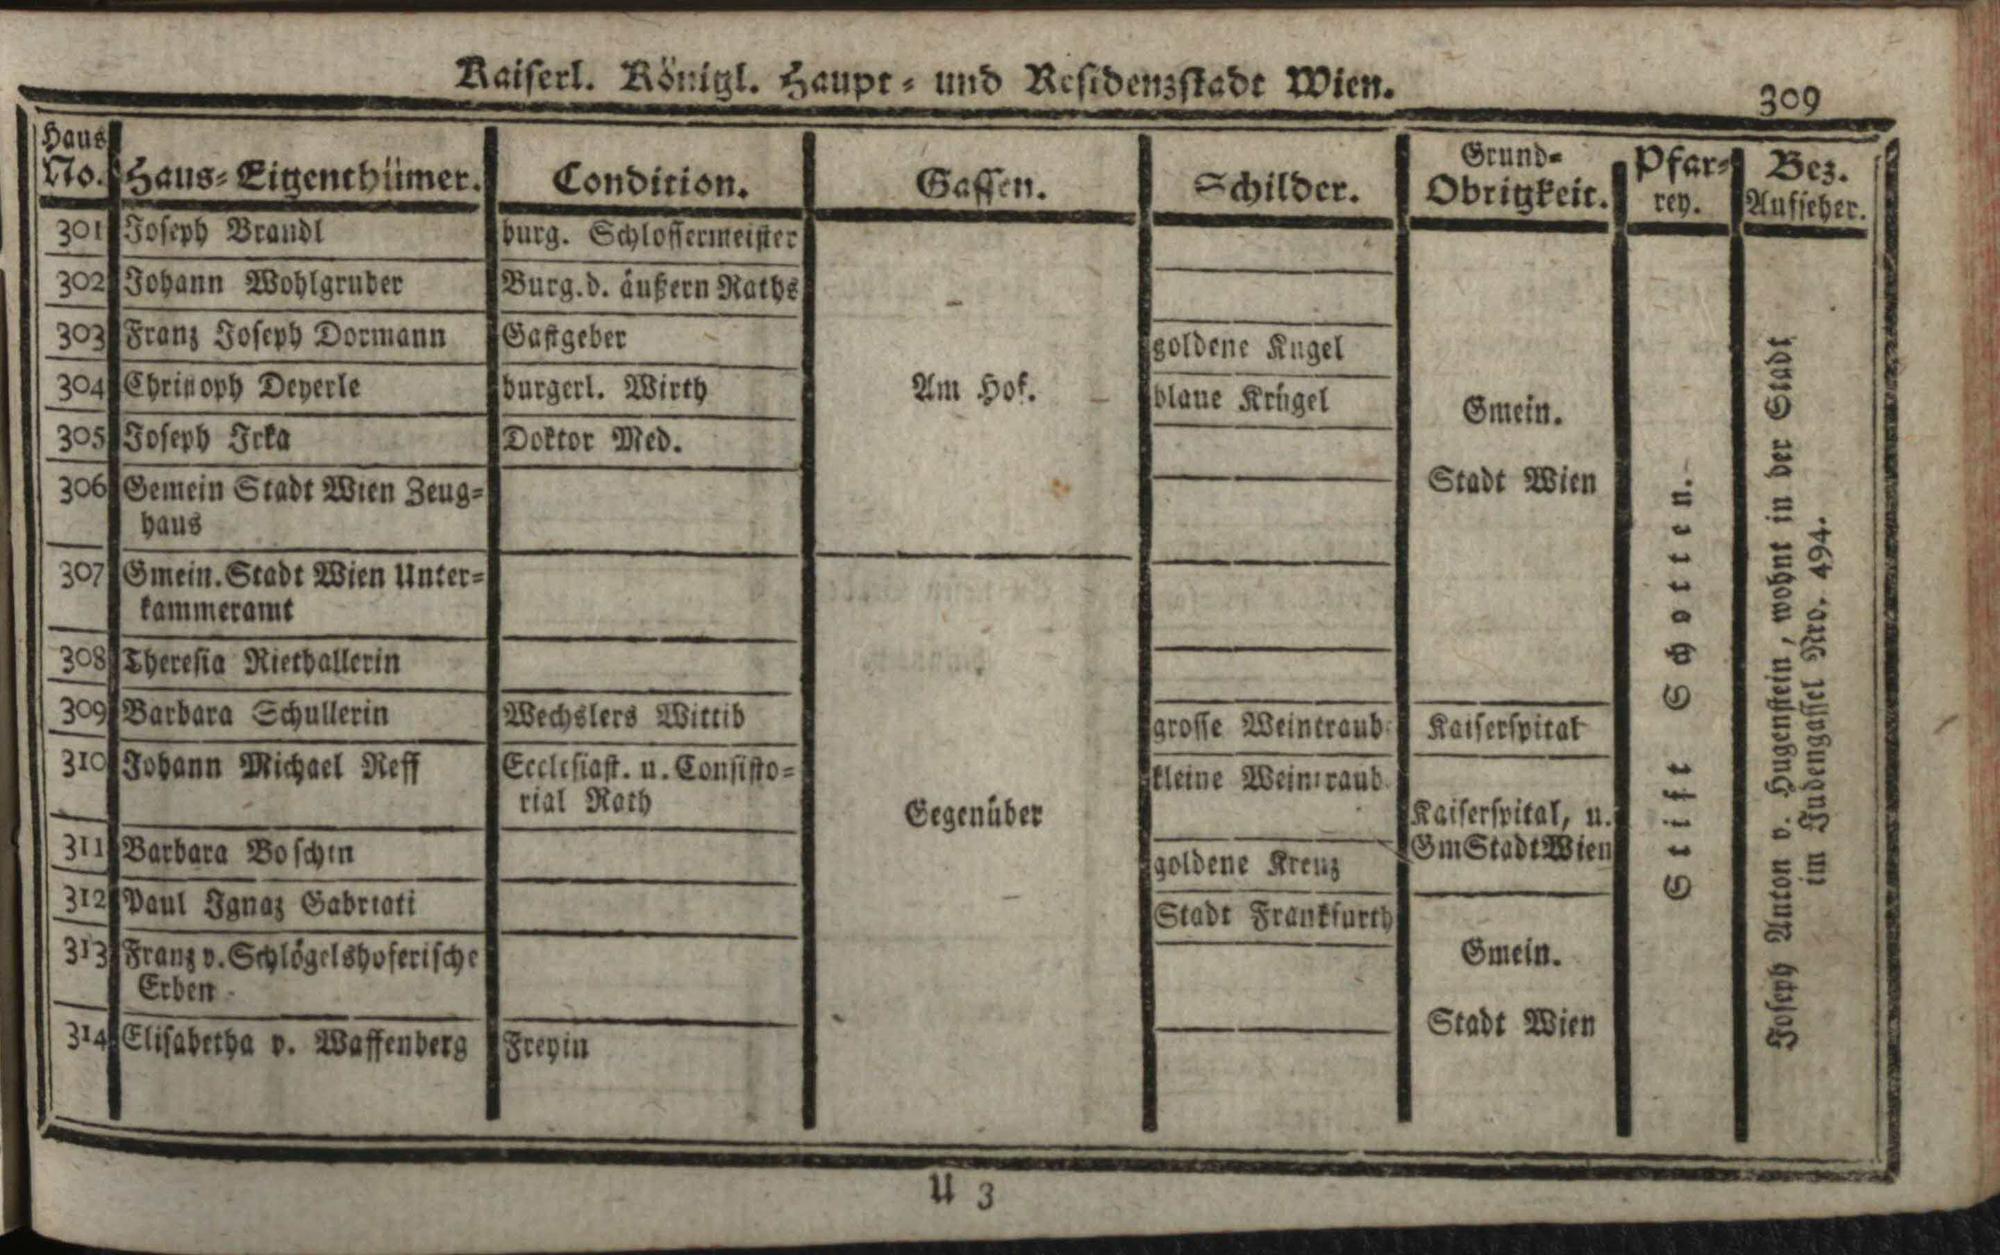 Kaiserl. Königl. Haupt- und Residenzstadt Wien.
309
Haus No.
Haus-Eigenthümer.
Condition.
Gassen.
Schilder.
Grund-Obrigkeit.
Pfarrey.
Bez. Aufseher.
301 Joseph Brandl burg. Schlossermeister
302 Johann Wohlgruber Burg. d. äußern Raths
303 Franz Joseph Dormann Gastgeber goldene Kugel
304 Christoph Deyerle burgerl. Wirth blaue Krügel
Am Hof.
Gmein.
305 Joseph Irka Doktor Med.
306 Gemein Stadt Wien Zeug-
haus
Stadt Wien
307 Gmein. Stadt Wien Unter-
kammeramt
308 Theresia Riethallerin
309 Barbara Schullerin Wechslers Wittib grosse Weintraub Kaiserspital
310 Johann Michael Reff Ecclesiast. u. Consisto- kleine Weintraub
rial Rath
Gegenüber
Kaiserspital, u.
Gm Stadt Wien
311 Barbara Boschin goldene Kreuz
312 Paul Ignaz Gabriati Stadt Frankfurth
313 Franz v. Schlögelshoferische
Erben
Gmein.
Stadt Wien
314 Elisabetha v. Waffenberg Freyin
Stift Schotten.
Joseph Anton v. Hugenstein, wohnt in der Stadt
im Judengassel Nro. 494.
U 3